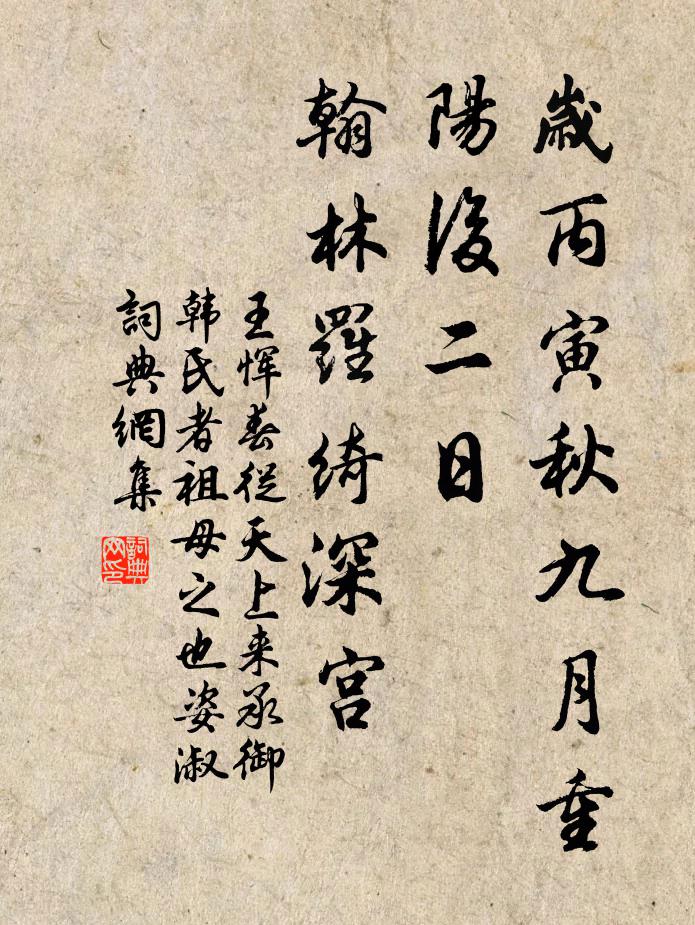 歲丙寅秋九月重
陽後二日
翰林羅綺深宮
王惲春從天上来承御
韩氏者祖母之也姿淑
詞典網集
詞典網印